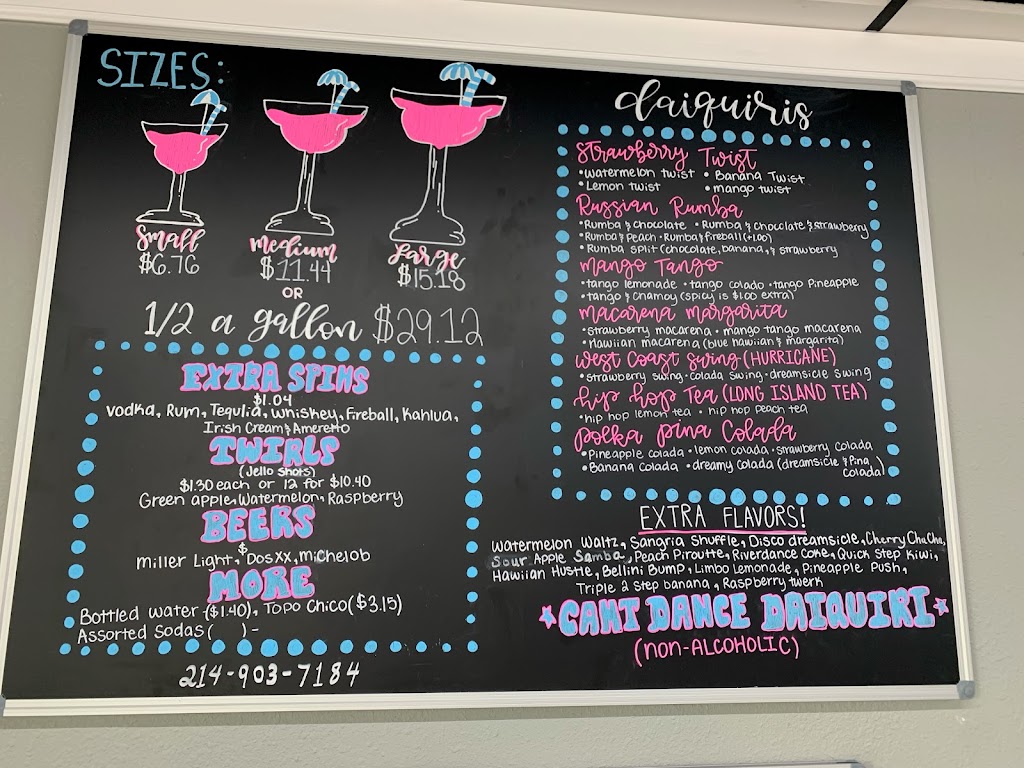 SIZES:
small
$6.76
medium
$11.44
large
$15.18
OR
1/2 a gallon $29.12
EXTRA SPINS
$1.04
vodka, Rum, Tequlia, whiskey, Fireball, Kahlua,
Irish Cream & Ameretto
TWIRLS
(Jello shots)
$1.30 each or 12 for $10.40
Green apple, Watermelon, Raspberry
BEERS
$
miller Light, Dos XX, michelob
MORE
Bottled water ($1.40), Topo Chico ($3.15)
Assorted Sodas ( ) -
214-903-7184
daiquiris
Strawberry Twist
•watermelon twist • Banana Twist
•Lemon twist • mango twist
Russian Rumba
•Rumba & chocolate •Rumba & chocolate & strawberry
•Rumba & Peach •Rumba & fireball (+1.00)
•Rumba split (chocolate, banana, & strawberry
mango Tango
•tango lemonade •tango colado •tango Pineapple
•tango & chamoy (spicy is $1.00 extra)
macarena margarita
•strawberry macarena • mango tango macarena
•Hawiian macarena (blue hawiian & margarita)
West Coast Swing (HURRICANE)
•strawberry swing •colada swing •dreamsicle swing
hip hop Tea (LONG ISLAND TEA)
•hip hop lemon tea • hip hop peach tea
Polka Pina Colada
•Pineapple colada •lemon colada •strawberry colada
•Banana colada •dreamy colada (dreamsicle & Pina
colada)
EXTRA FLAVORS!
Watermelon Waltz, Sangria Shuffle, Disco dreamsicle, Cherry Cha Cha,
Sour Apple Samba, Peach Piroutte, Riverdance Coke, Quick Step Kiwi,
Hawiian Hustle, Bellini Bump, Limbo Lemonade, Pineapple Push,
Triple 2 Step banana, Raspberry twerk
★CANT DANCE DAIQUIRI★
(non-ALCOHOLIC)